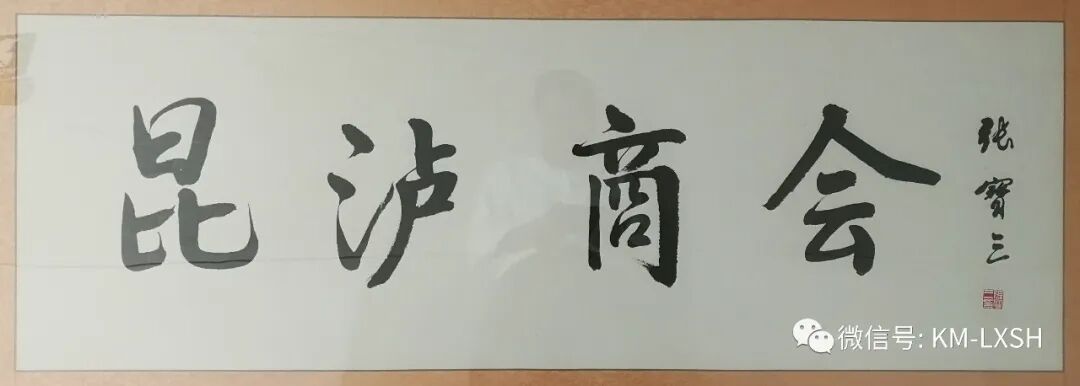 昆泸商会
张寶三
微信号: KM-LXSH